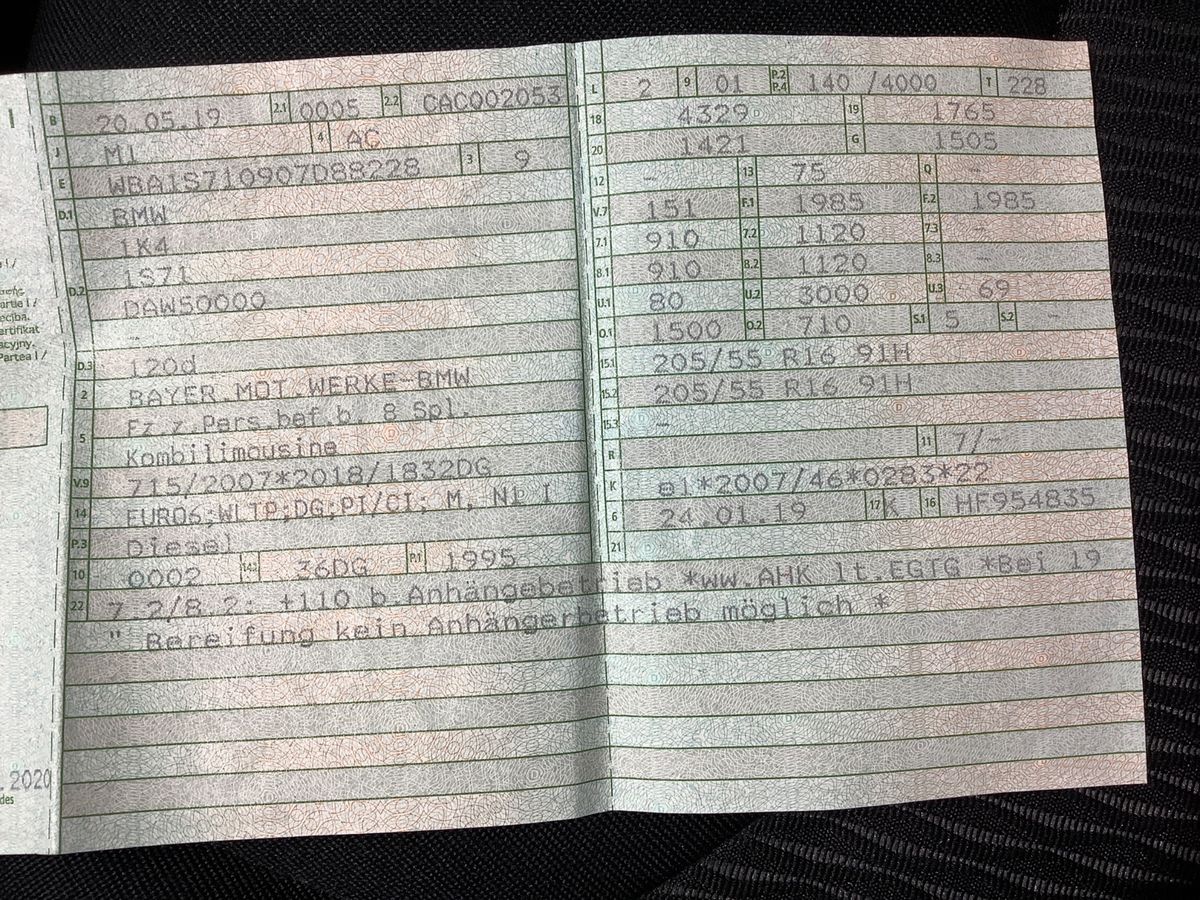 I
B 20.05.19 2.1 0005 2.2 CAC002053
J M1 4 AC
E WBA1S710907D88228 3 9
D.1 BMW
1K4
D.2 1S71
DAW50000
-
D.3 120d
2 BAYER.MOT.WERKE-BMW
5 Fz.z.Pers.bef.b. 8 Spl.
Kombilimousine
V.9 715/2007*2018/1832DG
14 EURO6;WLTP;DG;PI/CI; M, N1 I
P.3 Diesel
10 0002 14.1 36DG P.1 1995
22 7.2/8.2: +110 b.Anhängebetrieb *ww.AHK lt.EGTG *Bei 19
" Bereifung kein Anhängerbetrieb möglich *
L 2 9 01 P.2 P.4 140 /4000 T 228
18 4329 19 1765
20 1421 G 1505
12 - 13 75 Q -
V.7 151 F.1 1985 F.2 1985
7.1 910 7.2 1120 7.3 -
8.1 910 8.2 1120 8.3 -
U.1 80 U.2 3000 U.3 69
O.1 1500 O.2 710 S.1 5 S.2 -
15.1 205/55 R16 91H
15.2 205/55 R16 91H
15.3 -
R 11 7/-
K e1*2007/46*0283*22
6 24.01.19 17 K 16 HF954835
21
ertifikat
acyjny.
Partea I /
.2020
des